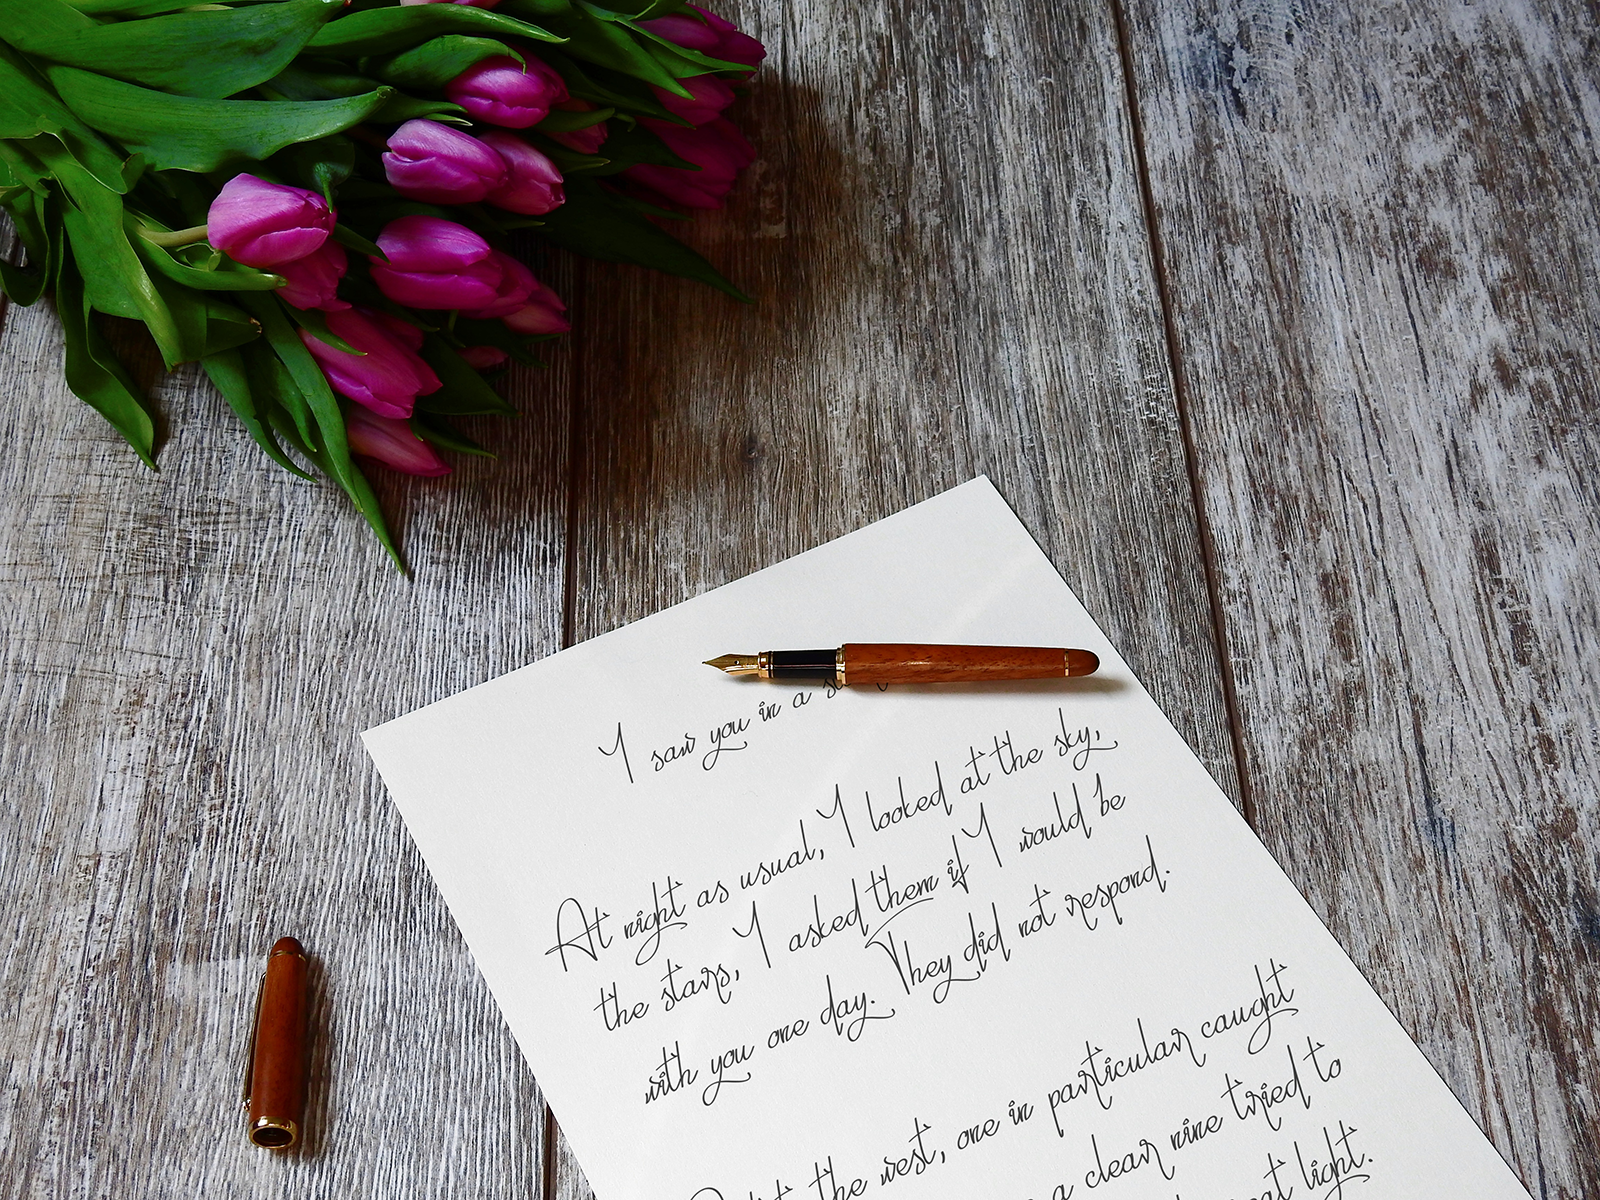 I saw you in a
At night as usual, I looked at the sky,
the stars, I asked them if I would be
with you one day. They did not respond.
the west, one in particular caught
a clear nine tried to
light.